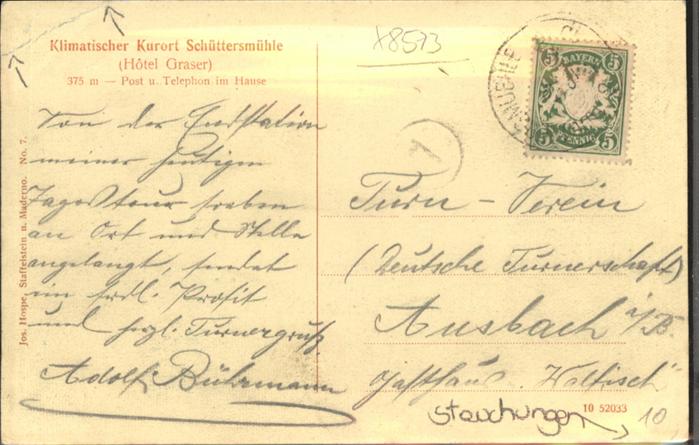 Klimatischer Kurort Schüttersmühle
(Hôtel Graser)
375 m — Post u. Telephon im Hause
x8573
BAYERN
5 5
5 5
PFENNIG
Von der Endstation
meiner heutigen
Tagestour soeben
an Ort und Stelle
angelangt, sendet
ein frdl. Prosit
und hrzl. Turnergruß
Adolf Bührmann
Turn - Verein
(Deutsche Turnerschaft)
Ansbach i/B.
Gasthaus "Walfisch"
Jos. Hospe, Staffelstein u. Maderno. No. 7.
10 52033
Stauchungen
10